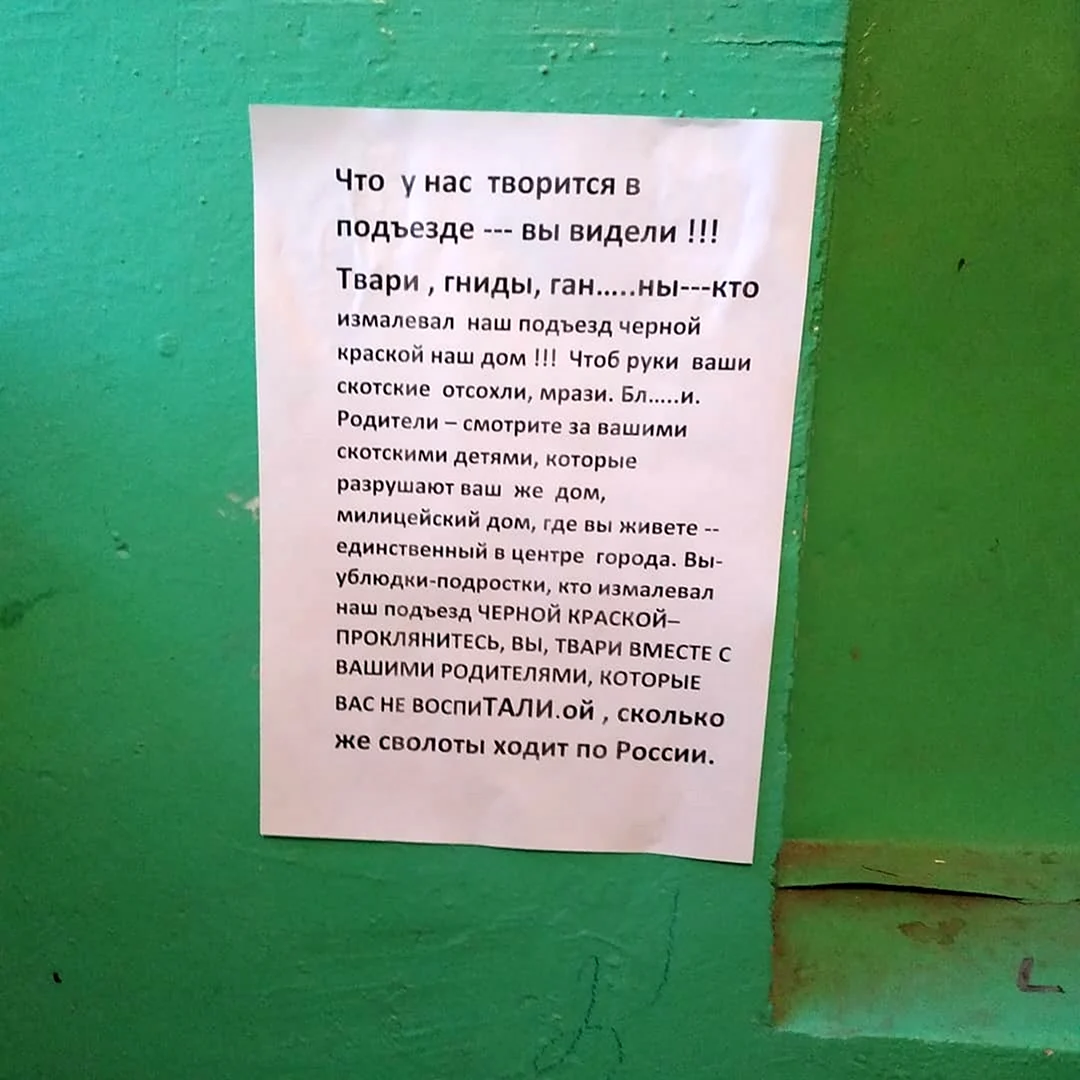 Что у нас творится в
подъезде --- вы видели !!!
Твари , гниды, ган.....ны---кто
измалевал наш подъезд черной
краской наш дом !!! Чтоб руки ваши
скотские отсохли, мрази. Бл.....и.
Родители – смотрите за вашими
скотскими детями, которые
разрушают ваш же дом,
милицейский дом, где вы живете --
единственный в центре города. Вы-
ублюдки-подростки, кто измалевал
наш подъезд ЧЕРНОЙ КРАСКОЙ–
ПРОКЛЯНИТЕСЬ, ВЫ, ТВАРИ ВМЕСТЕ С
ВАШИМИ РОДИТЕЛЯМИ, КОТОРЫЕ
ВАС НЕ ВОСПиТАЛИ.ой , сколько
же сволоты ходит по России.